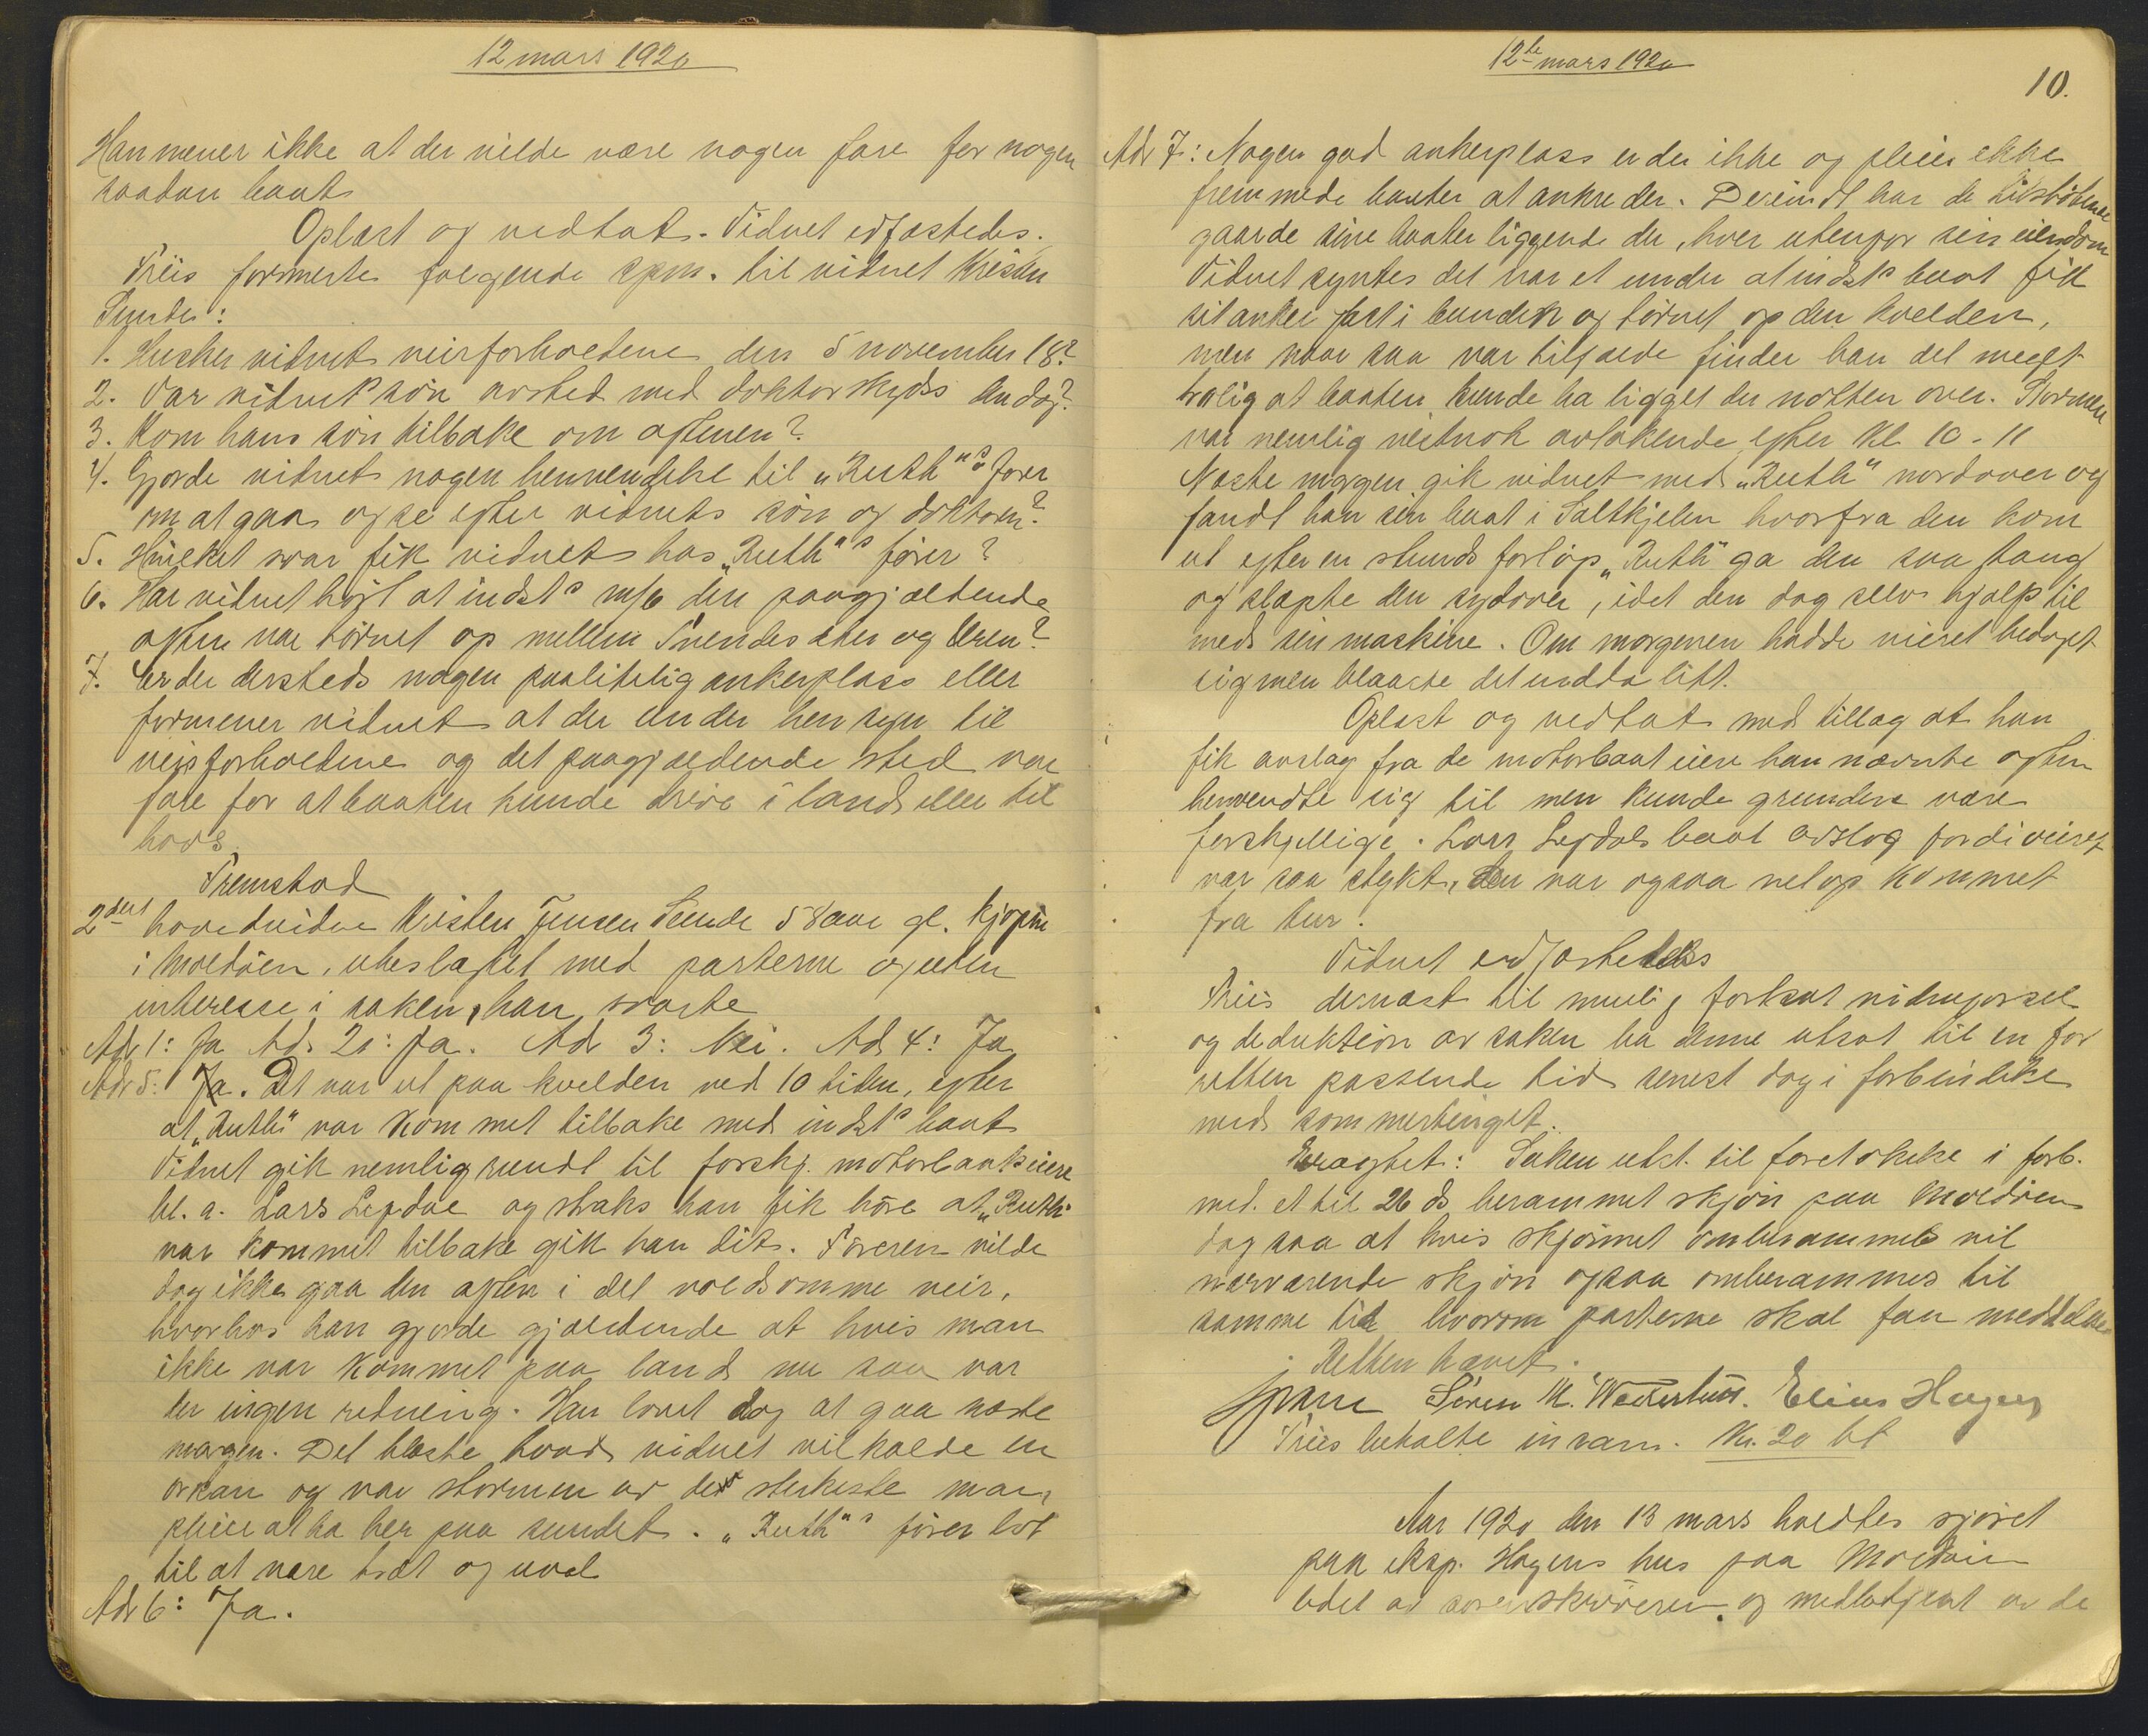 12 mars 1920
Han mener ikke at der vilde være nogen fare for nogen
saadan baat
Oplæst og vedtat. Vidnet edfæstedes.
Friis formerte følgende spm. til vidnet Kristen
Sunde:
1. Husker vidnet veirforholdene den 5 november 18?
2. Var vidnets søn avsted med doktorskyds den dag?
3. Kom hans søn tilbake om aftenen?
4. Gjorde vidnet nogen henvendelse til „Ruth"s fører
om at gaa og se efter vidnets søn og doktoren?
5. Hvilket svar fik vidnet hos „Ruth"s fører?
6. Har vidnet hørt at indst.s m/b den paagjældende
aften var tørnet op mellem Svendes og Uren?
7. Er der dersteds nogen paalitelig ankerplass eller
formener vidnet at der under hensyn til
veirforholdene og det paagjældende sted var
fare for at baaten kunde drive i land eller til
havs
Fremstod
2det hovedvidne Kristen Jensen Sunde 58 aar gl. kjøpm.
i Moldøen, ubeslægtet med parterne og uten
interesse i saken, han svarte
Ad 1: Ja Ad. 2: Ja. Ad 3: Nei. Ad 4: Ja
Ad 5: Ja. Det var ut paa kvelden ved 10 tiden, efter
at „Ruth" var kommet tilbake med indst.s baat
Vidnet gik nemlig rundt til forskj. motorbaateiere
bl. a. Lars Legdal og straks han fik høre at „Ruth"
var kommet tilbake gik han dit. Føreren vilde
dog ikke gaa den aften i det voldsomme veir,
hvorhos han gjorde gjældende at hvis man
ikke var kommet paa land nu saa var
der ingen redning. Han lovet dog at gaa næste
morgen. Det blæste hvad vidnet vil kalde en
orkan og var stormen av de sterkeste man
pleier at ha her paa sundet. „Ruth"s fører lot
til at være træt og uvel
Ad 6: Ja.
12te mars 1920
10.
Ad 7: Nogen god ankerplass er der ikke og pleier ikke
fremmede baater at ankre der. Derimot har de tilstøtende
gaarde sine baater liggende der, hver utenfor sin eiendom
Vidnet syntes det var et under at indst.s baat fik
sit anker fast i bunden og tørnet op den kvelden,
men naar saa var tilfælde finder han det meget
trolig at baaten kunde ha ligget der natten over. Stormen
var nemlig vistnok avtakende efter kl. 10-11
Næste morgen gik vidnet med „Ruth" nordover og
fandt han sin baat i Saltkjelen hvorfra den kom
ut efter en stunds forløp. „Ruth" ga den saa fang
og slæpte den sydover, idet den dog selv hjalp til
med sin maskine. Om morgenen hadde veiret bedaget
sig men blaaste det endda litt.
Oplæst og vedtat med tillæg at han
fik avslag fra de motorbaateiere han nævnte aften
henvendte sig til men kunde grundene være
forskjellige. Lars Legdals baat avslog fordi veiret
var saa stykt, den var ogsaa netop kommet
fra tur.
Vidnet edfæstedes
Friis dernæst til mulig fortsat vidneførsel
og deduktion av saken ba denne utsat til en for
retten passende tid senest dog i forbindelse
med sommertinget.
Eragtet: Saken utst. til foretakelse i forb.
med. et til 26 ds berammet skjøn paa Moldøen
dog saa at hvis skjønnet omberammes vil
nærværende skjøn ogsaa omberammes til
samme tid hvorom parterne skal faa meddelelse
Retten hævet.
Sparre Søren M. Elias Hagen
Friis betalte invarsl. Kr. 20 bt
Aar 1920 den 13 mars holdtes sjøret
paa eksp. Hagens hus paa Moldøen
ledet av sorenskriveren og medbetjent av de